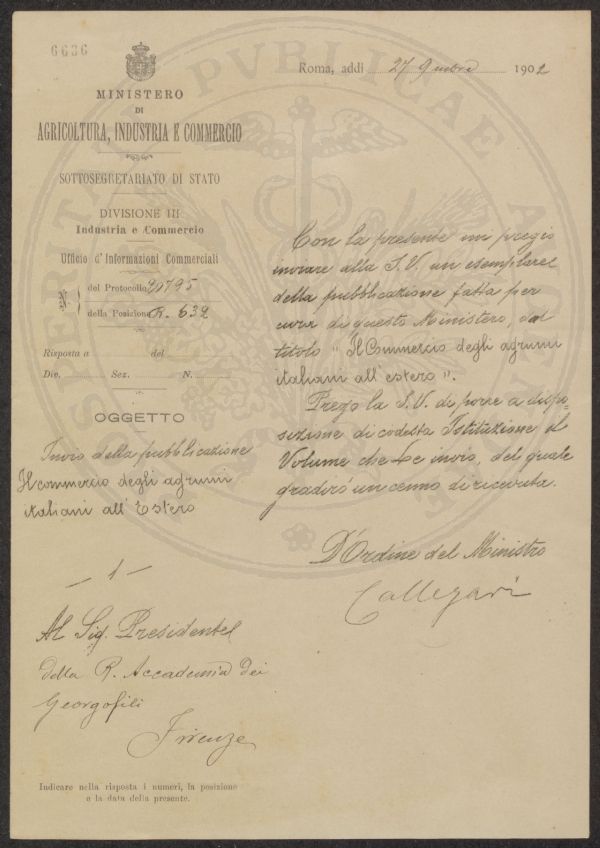 6636
Roma, addì 27 9mbre 1902
MINISTERO
DI
AGRICOLTURA, INDUSTRIA E COMMERCIO
SOTTOSEGRETARIATO DI STATO
DIVISIONE III
Industria e Commercio
Ufficio d'Informazioni Commerciali
N.
del Protocollo 20795
della Posizione R. 632
Risposta a del
Div. Sez. N.
OGGETTO
Invio della pubblicazione
Il commercio degli agrumi
italiani all'Estero
Con la presente mi pregio
inviare alla S.V. un esemplare
della pubblicazione fatta per
cura di questo Ministero, dal
titolo "Il Commercio degli agrumi
italiani all'estero".
Prego la S.V. di porre a dispo-
sizione di codesta Istituzione il
Volume che Le invio, del quale
gradirò un cenno di ricevuta.
D'Ordine del Ministro
Callegari
- 1 -
Al Sig. Presidente
della R. Accademia dei
Georgofili
Firenze
Indicare nella risposta i numeri, la posizione
e la data della presente.